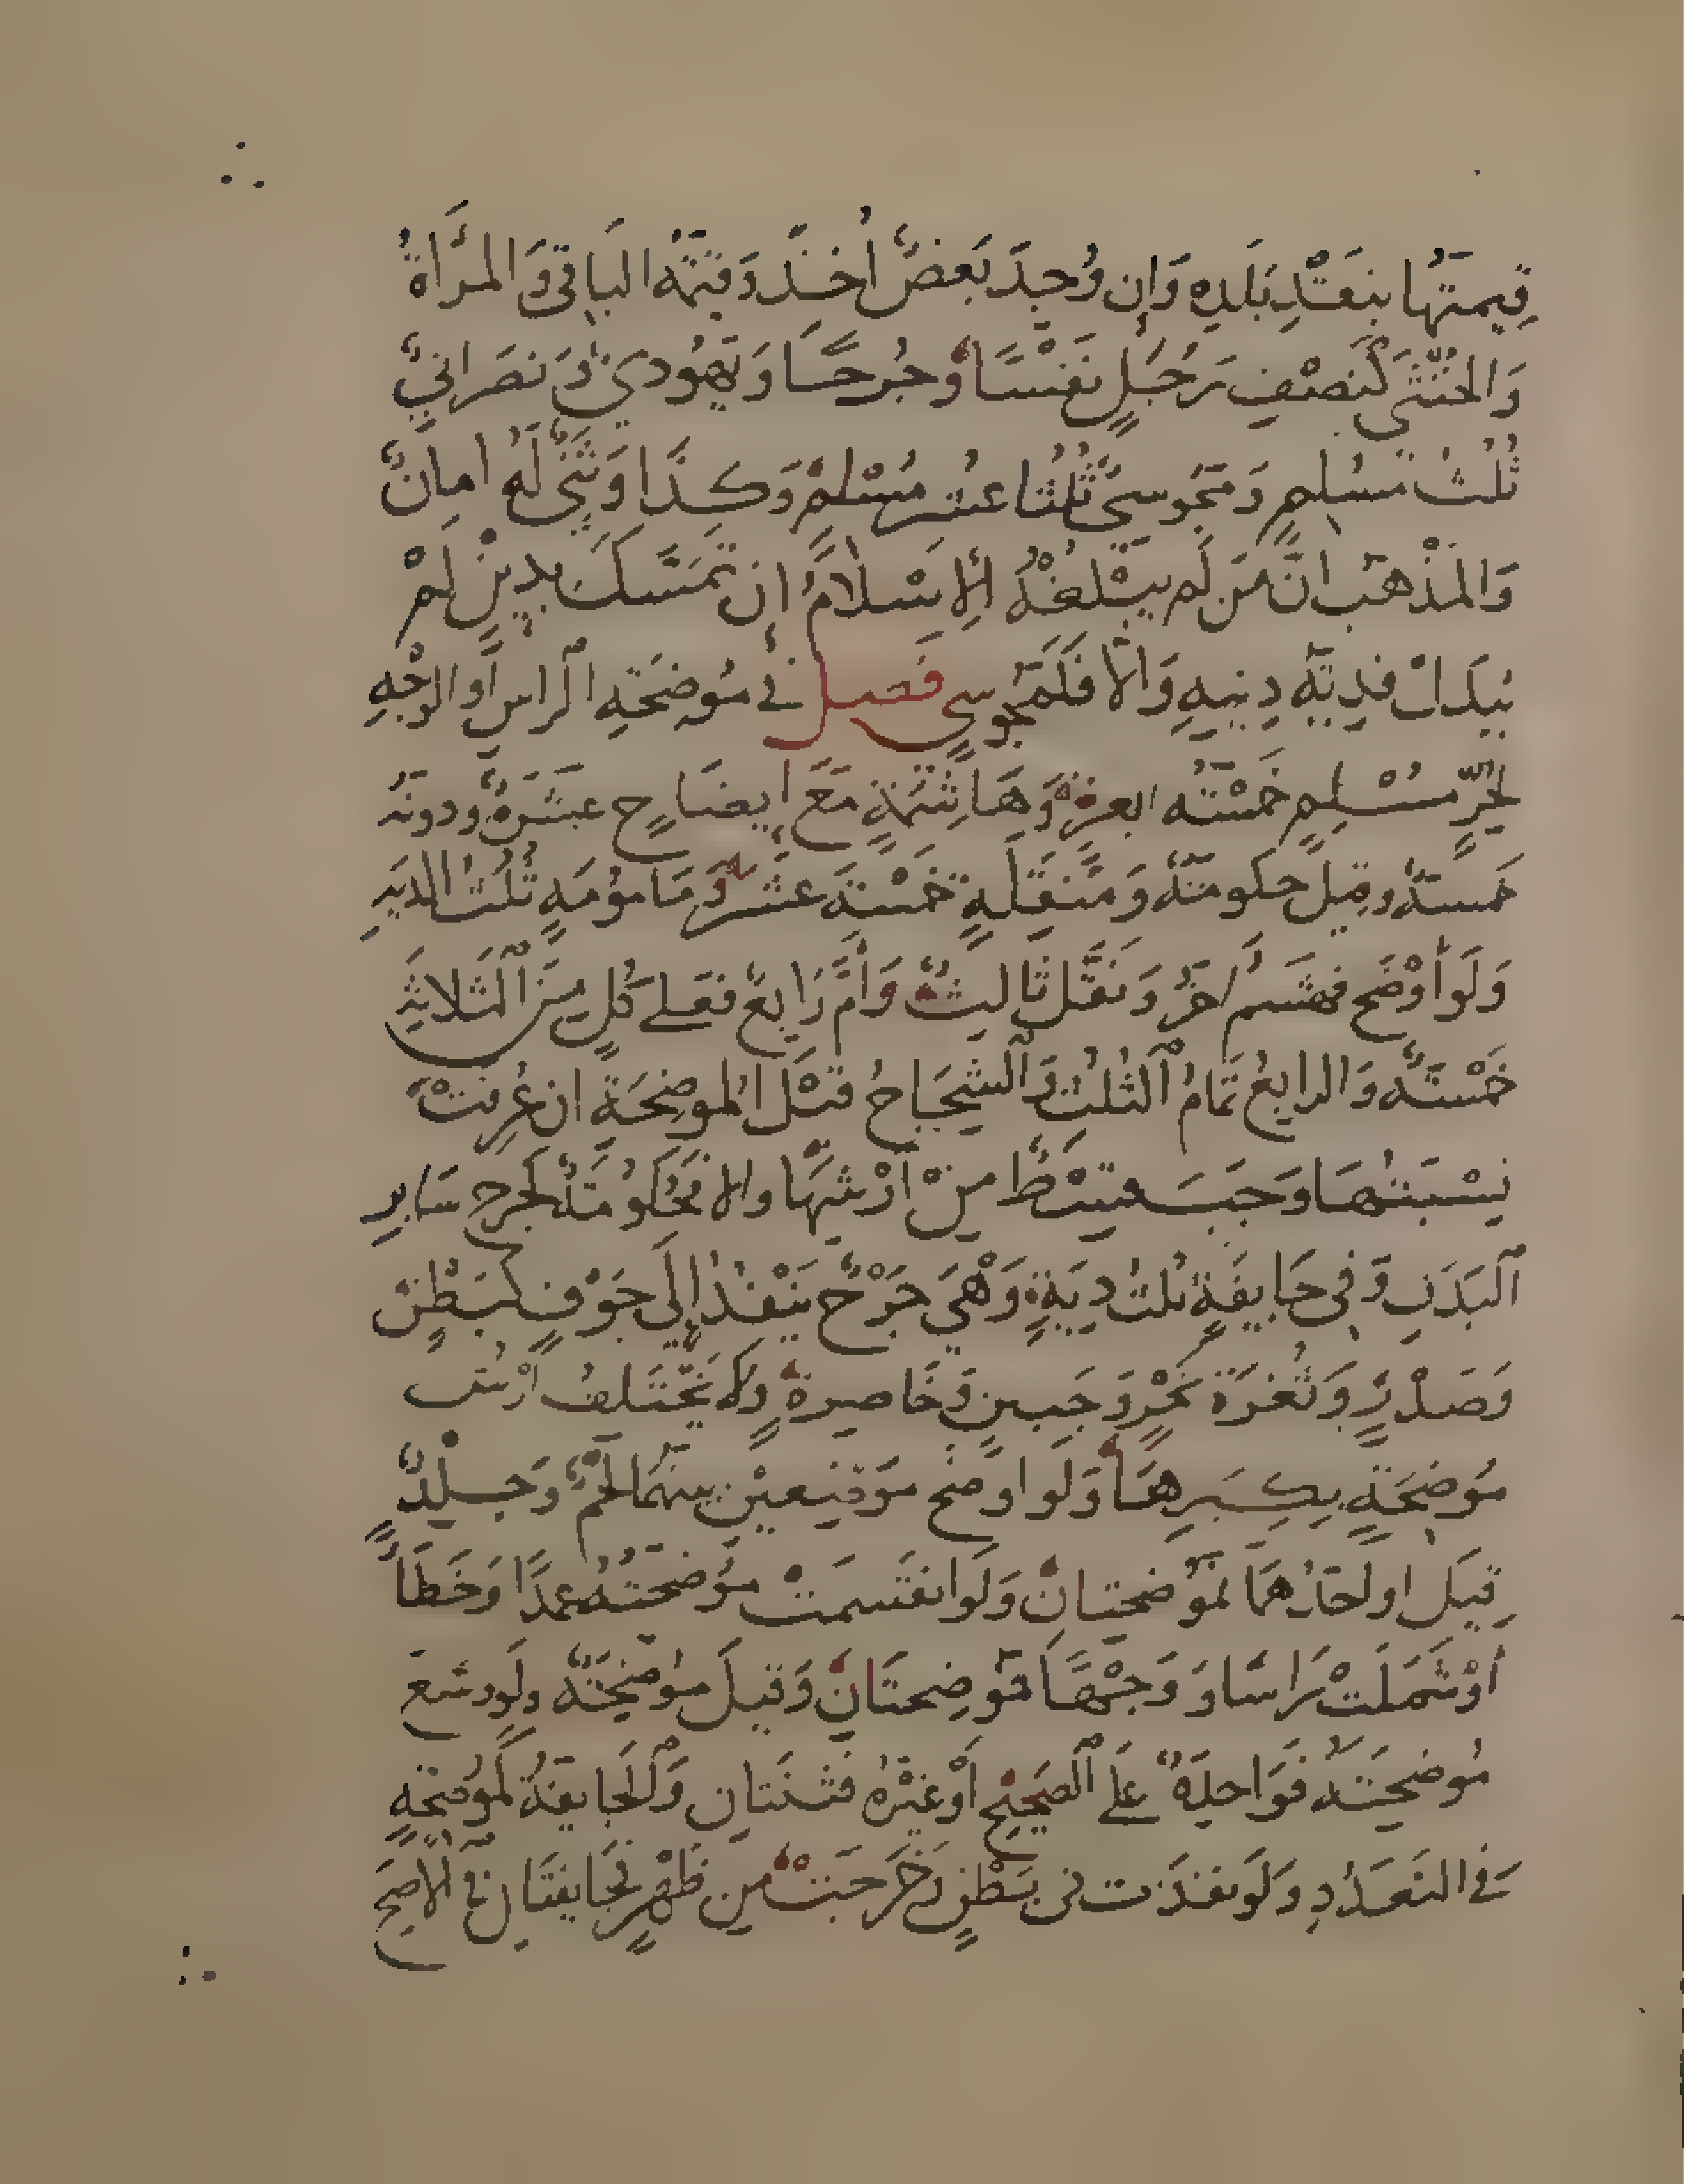 قِيمَتُهَا بِنَقْدِ بَلَدِهِ وَإِن وُجِدَ بَعْضٌ أُخِذَ وَقِيمَةُ البَاقِي وَالمَرْأَةُ
وَالخُنْثَى كَنِصْفِ رَجُلٍ نَفْسًا وَجُرحًا وَيَهُودِيٌّ وَنَصْرَانِيٌّ
ثُلُثُ مُسْلِمٍ وَمَجُوسِيٌّ ثُلُثَا عُشْرِ مُسْلِمٍ وَكَذَا وَثَنِيٌّ لَهُ امانٌ
وَالمَذْهَبُ انَّ مَن لَم يَبْلُغْهُ الإِسْلَامُ إن تَمَسَّكَ بِدِينٍ لَمْ
يُبَدَّلْ فَدِيَةُ دِينِهِ وَإلَّا فَكَمَجُوسِيٍّ فَصل في مُوضِحَةِ الراسِ او الوَجْهِ
لِحُرٍّ مُسْلِمٍ خَمْسَةُ ابعرةٍ وَهَاشِمَةٍ مَعَ إيضَاحٍ عَشَرَةٌ ودونَهُ
خَمسَةٌ وقِيلَ حكومَةٌ وَمُنَقِّلَةٍ خَمْسَةَ عَشَرَ وَمَامُومَةٍ ثُلُثُ الديَةِ
وَلَو أَوْضَحَ فهَشَمَ آخَرُ وَنَقَّلَ ثَالِثٌ وَأَمَّ رَابِعٌ فَعَلَى كُلٍّ مِنَ الثَلَاثَةِ
خَمْسَةٌ وَالرابِعُ تَمَامُ الثُلُثِ وَالشِّجَاجُ قَبْلَ المُوضِحَةِ ان عُرِفَتْ
نِسْبَتُهَا وَجَبَ قِسْطٌ مِنْ أَرْشِهَا والا فحُكُومَةٌ كَجرحِ سَايِرِ
البَدَنِ وَفي جَايِفَةٍ ثُلُثُ دِيَةٍ وَهْيَ جَرْحٌ يَنْفُذُ إلَى جَوْفٍ كَبَطْنٍ
وَصَدْرٍ وَثُغْرَةِ نَحْرٍ وَجَبِينٍ وَخَاصِرةٍ وَلَا يَخْتَلِفُ أَرْشُ
مُوضِحَةٍ بِكِبَرِهَا وَلَو اوضَحَ مَوْضِعَيْنِ بينَهُمَا لَحْمٌ وَجِلْدٌ
قِيلَ او احدُهُمَا فَمُوضِحَتانِ وَلَو انقَسَمَتْ مُوضِحَتُهُ عَمدًا وَخَطَأً
أَوْ شَمِلَتْ رَاسًا وَ وَجْهًا فَمُوضِحتَانِ وَقِيلَ مُوضِحَةٌ ولَو وسَّعَ
مُوضِحَتَهُ فَوَاحِدَةٌ عَلَى الصَحِيحِ أَوْ غَيْرُهُ فَثِنْتَانِ وَالجَايِفَةُ كَمُوضِحَةٍ
فِي التَعَدُّدِ وَلَو نفَذَت فِي بَطْنٍ وَخَرَجَتْ مِن ظَهْرٍ فَجَايِفَتَانِ فِي الاصَحِّ